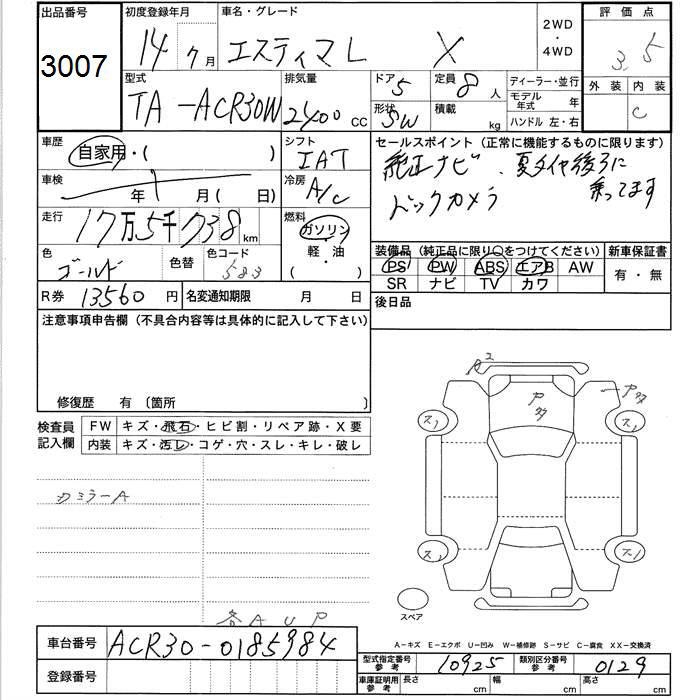 出品番号 初度登録年月 車名・グレード 2WD・4WD 評価点
3007 14年 7月 エスティマL X 3.5
型式 TA-ACR30W 排気量 2400 CC ドア 5 定員 8人 ディーラー・並行 外装 内装 C
形状 SW 積載 kg モデル年式 年 ハンドル 左・右
車歴 自家用・( ) シフト IAT セールスポイント (正常に機能するものに限ります)
車検 年 月 ( 日) 冷房 A/C 純正ナビ 夏タイヤ後ろに乗ってます
走行 17万5千738km 燃料 ガソリン・軽・油( ) バックカメラ
色 ゴールド 色替 色コード 583 装備品 (純正品に限り○をつけてください) 新車保証書
PS PW ABS エアB AW 有・無
SR ナビ TV カワ
R券 13560 円 名変通知期限 月 日 後日品
注意事項申告欄 (不具合内容等は具体的に記入して下さい)
修復歴 有 〔箇所 〕
検査員記入欄 FW キズ・飛石・ヒビ割・リペア跡・X要
内装 キズ・汚レ・コゲ・穴・スレ・キレ・破レ
A2
スペア
各AUP
A-キズ E-エクボ U-凹み W-補修跡 S-サビ C-腐食 XX-交換済
車台番号 ACR30-0185984 型式指定番号 参考 10925 類別区分番号 参考 0129
登録番号 車庫証明用 参考 長さ cm 幅 cm 高さ cm